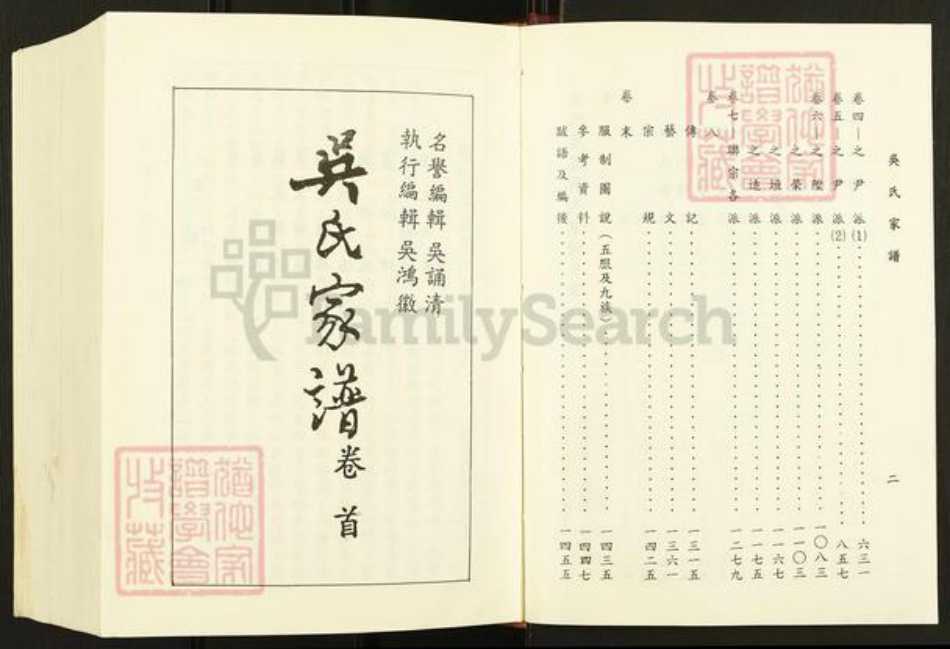 吳氏家譜
二
卷四—之尹派(1)・・・六三一
卷五—之尹派(2)・・・八五七
卷六—之陞派・・・一〇八三
之榮派・・・一一〇三
之垣派・・・一一六七
之逵派・・・一一七五
卷七—聯宗各派・・・一二七九
卷八
傳記・・・一三一五
藝文・・・一三六一
宗規・・・一四二五
卷末
服制圖說(五服及九族)・・・一四三五
參考資料・・・一四四七
跋語及編後・・・一四五五
名譽編輯 吳誦清
執行編輯 吳鴻徽
吳氏家譜 卷首
FamilySearch